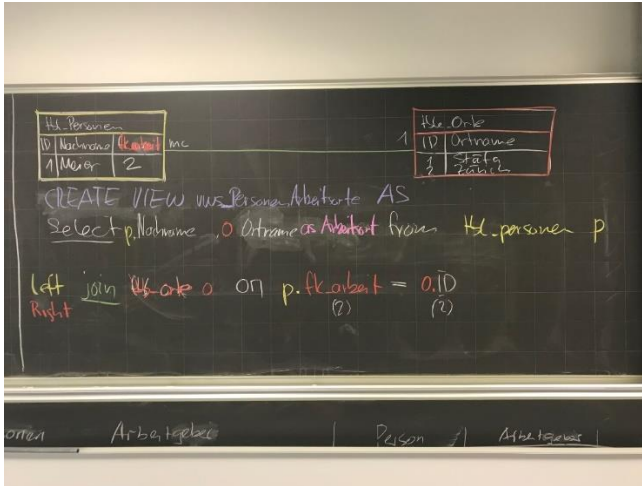 tbl_Personen
ID Nachname fk_arbeit mc
1 Meier 2
1 tbl_Orte
ID Ortname
1 Stäfa
2 Zürich
CREATE VIEW vws_Personen_Arbeitsorte AS
Select p.Nachname, o Ortname as Arbeitsort from tbl_personen p
left join tbl_orte o on p.fk_arbeit = o.ID
Right (2) (2)
onen Arbeitgeber Person Arbeitgeber